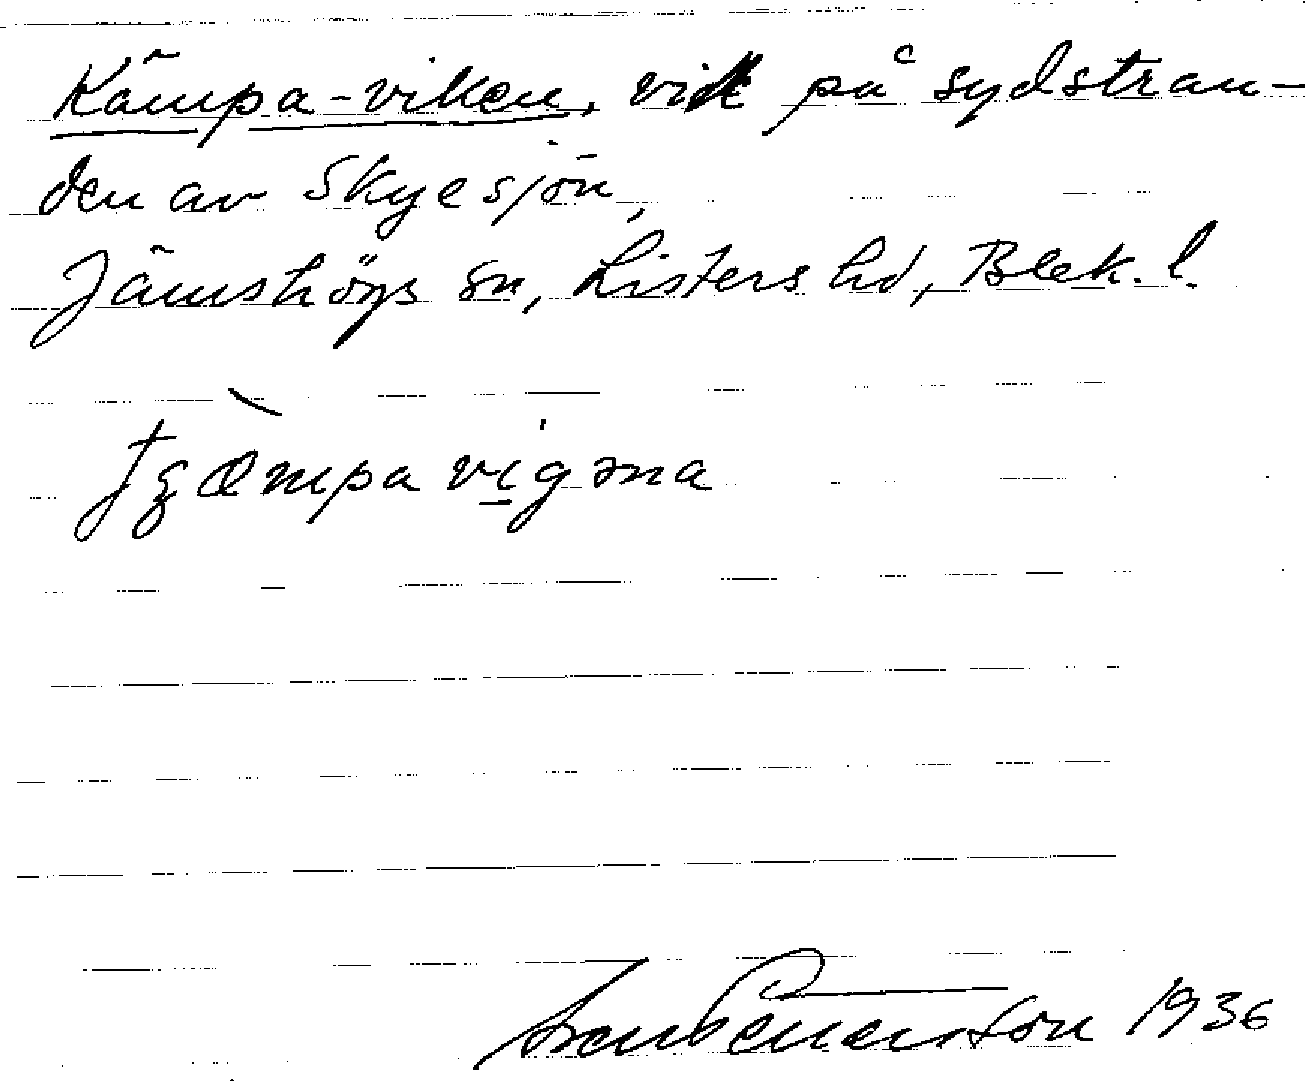 Kämpa-viken, vik på sydstran-
den av Skyesjön,
Jämshögs sn, Listers hd, Blek. l.
vigəna
1936